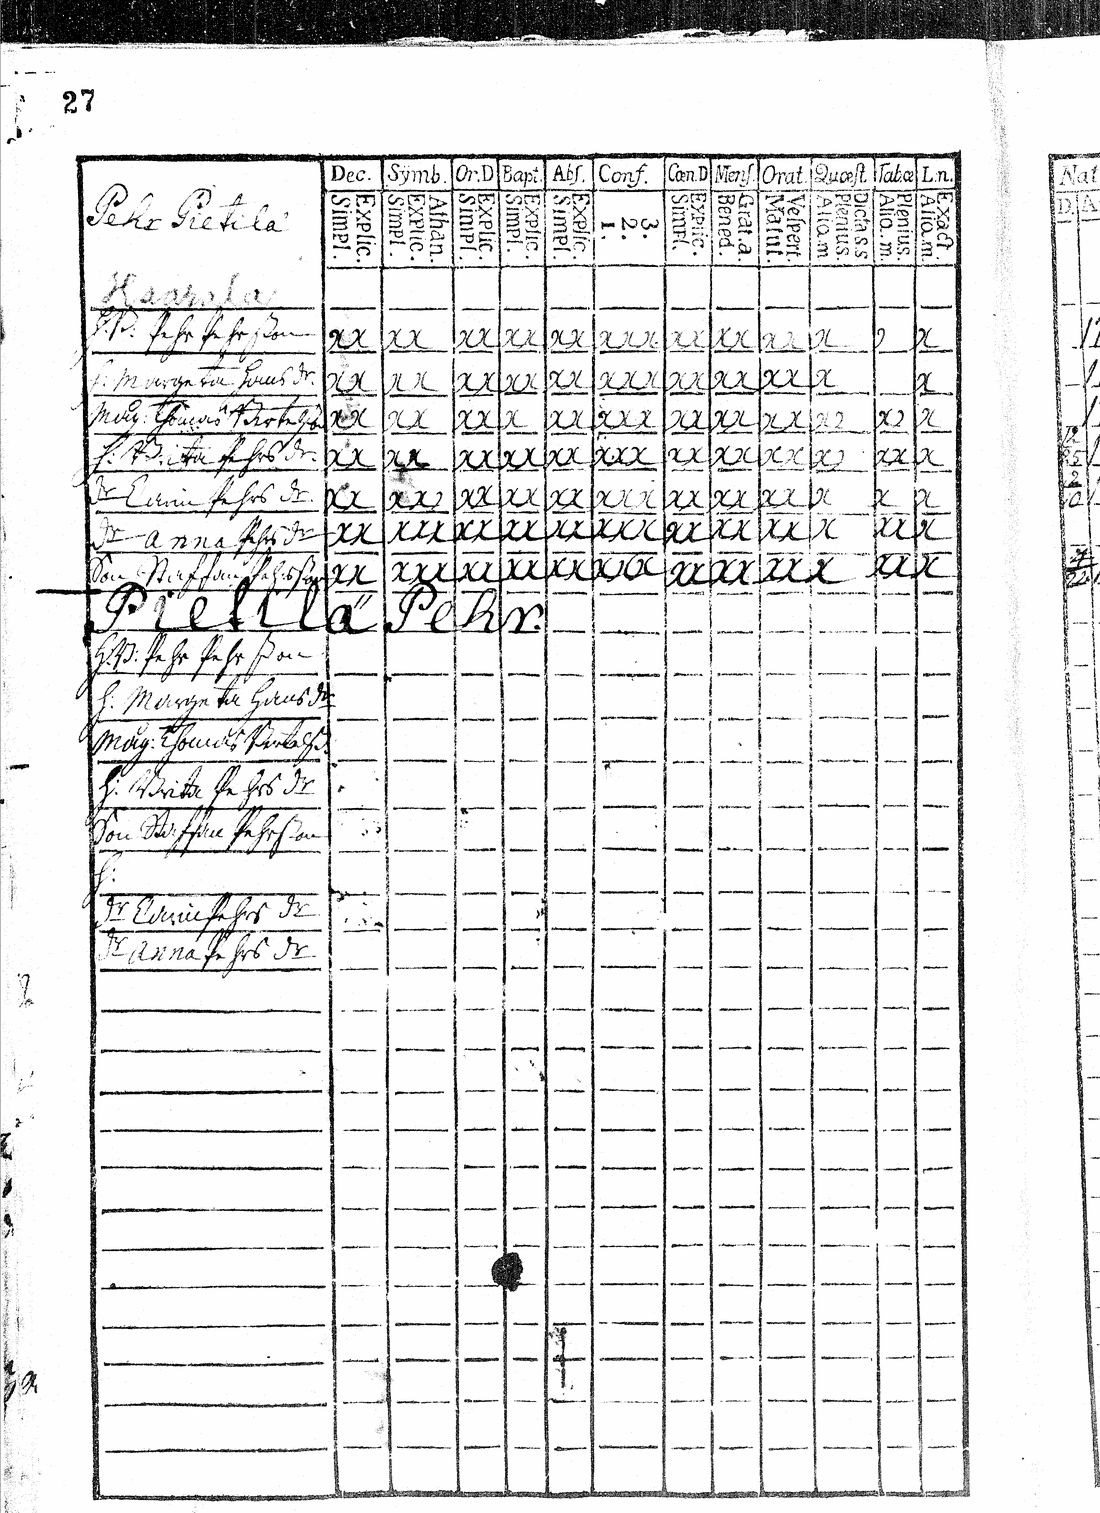 27
Dec. Symb. Or.D Bapt. Abs. Conf. Cœn.D Mens. Orat. Quæst. Tabæ L.n.
Explic. Simpl. Athan. Explic. Simpl. Explic. Simpl. Explic. Simpl. Explic. Simpl. 3. 2. 1. Explic. Simpl. Grat.a Bened. Vespert. Matut. Dicta s.s Plenius. Aliq.m Plenius. Aliq.m. Exact. Aliq.m.
Nat
D A
Pehr Pietilä
Haapala
Pehr Pehrsson xx xx xx xx xx xxx xx xx xx x x
h: Margeta Hansdr. xx xx xx xx xx xxx xx xx xx x x
Måg: Thomas xx xx xx x xx xxx xx xx xx x
h: Brita Pehrsdr. xx xx xx xx xx xxx xx xx xx xx x
dr Carin Pehrs dr. xx xx xx xx xxx xx xx xx x x x
dr Anna Pehrs dr xx xxx xx xx xx xxx xx xx xx x xx x
Son Staffan Pehrsson xx xxx xx xx xx xxx xx xx xx x xx x
Pietilä Pehr.
Pehr Pehrsson
h: Margeta Hansdr
Måg: Thomas
h: Brita Pehrs dr
Son Staffan Pehrsson
h:
dr Carin Pehrs dr
dr Anna Pehrs dr